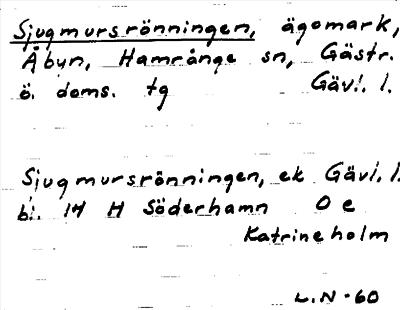 Sjugmursrönningen, ägomark,
Åbyn, Hamrånge sn, Gästr.
ö. doms. tg Gävl. l.
Sjugmursrönningen, ek Gävl. l.
bl. 14 H Söderhamn O e
Katrineholm
L.N -60